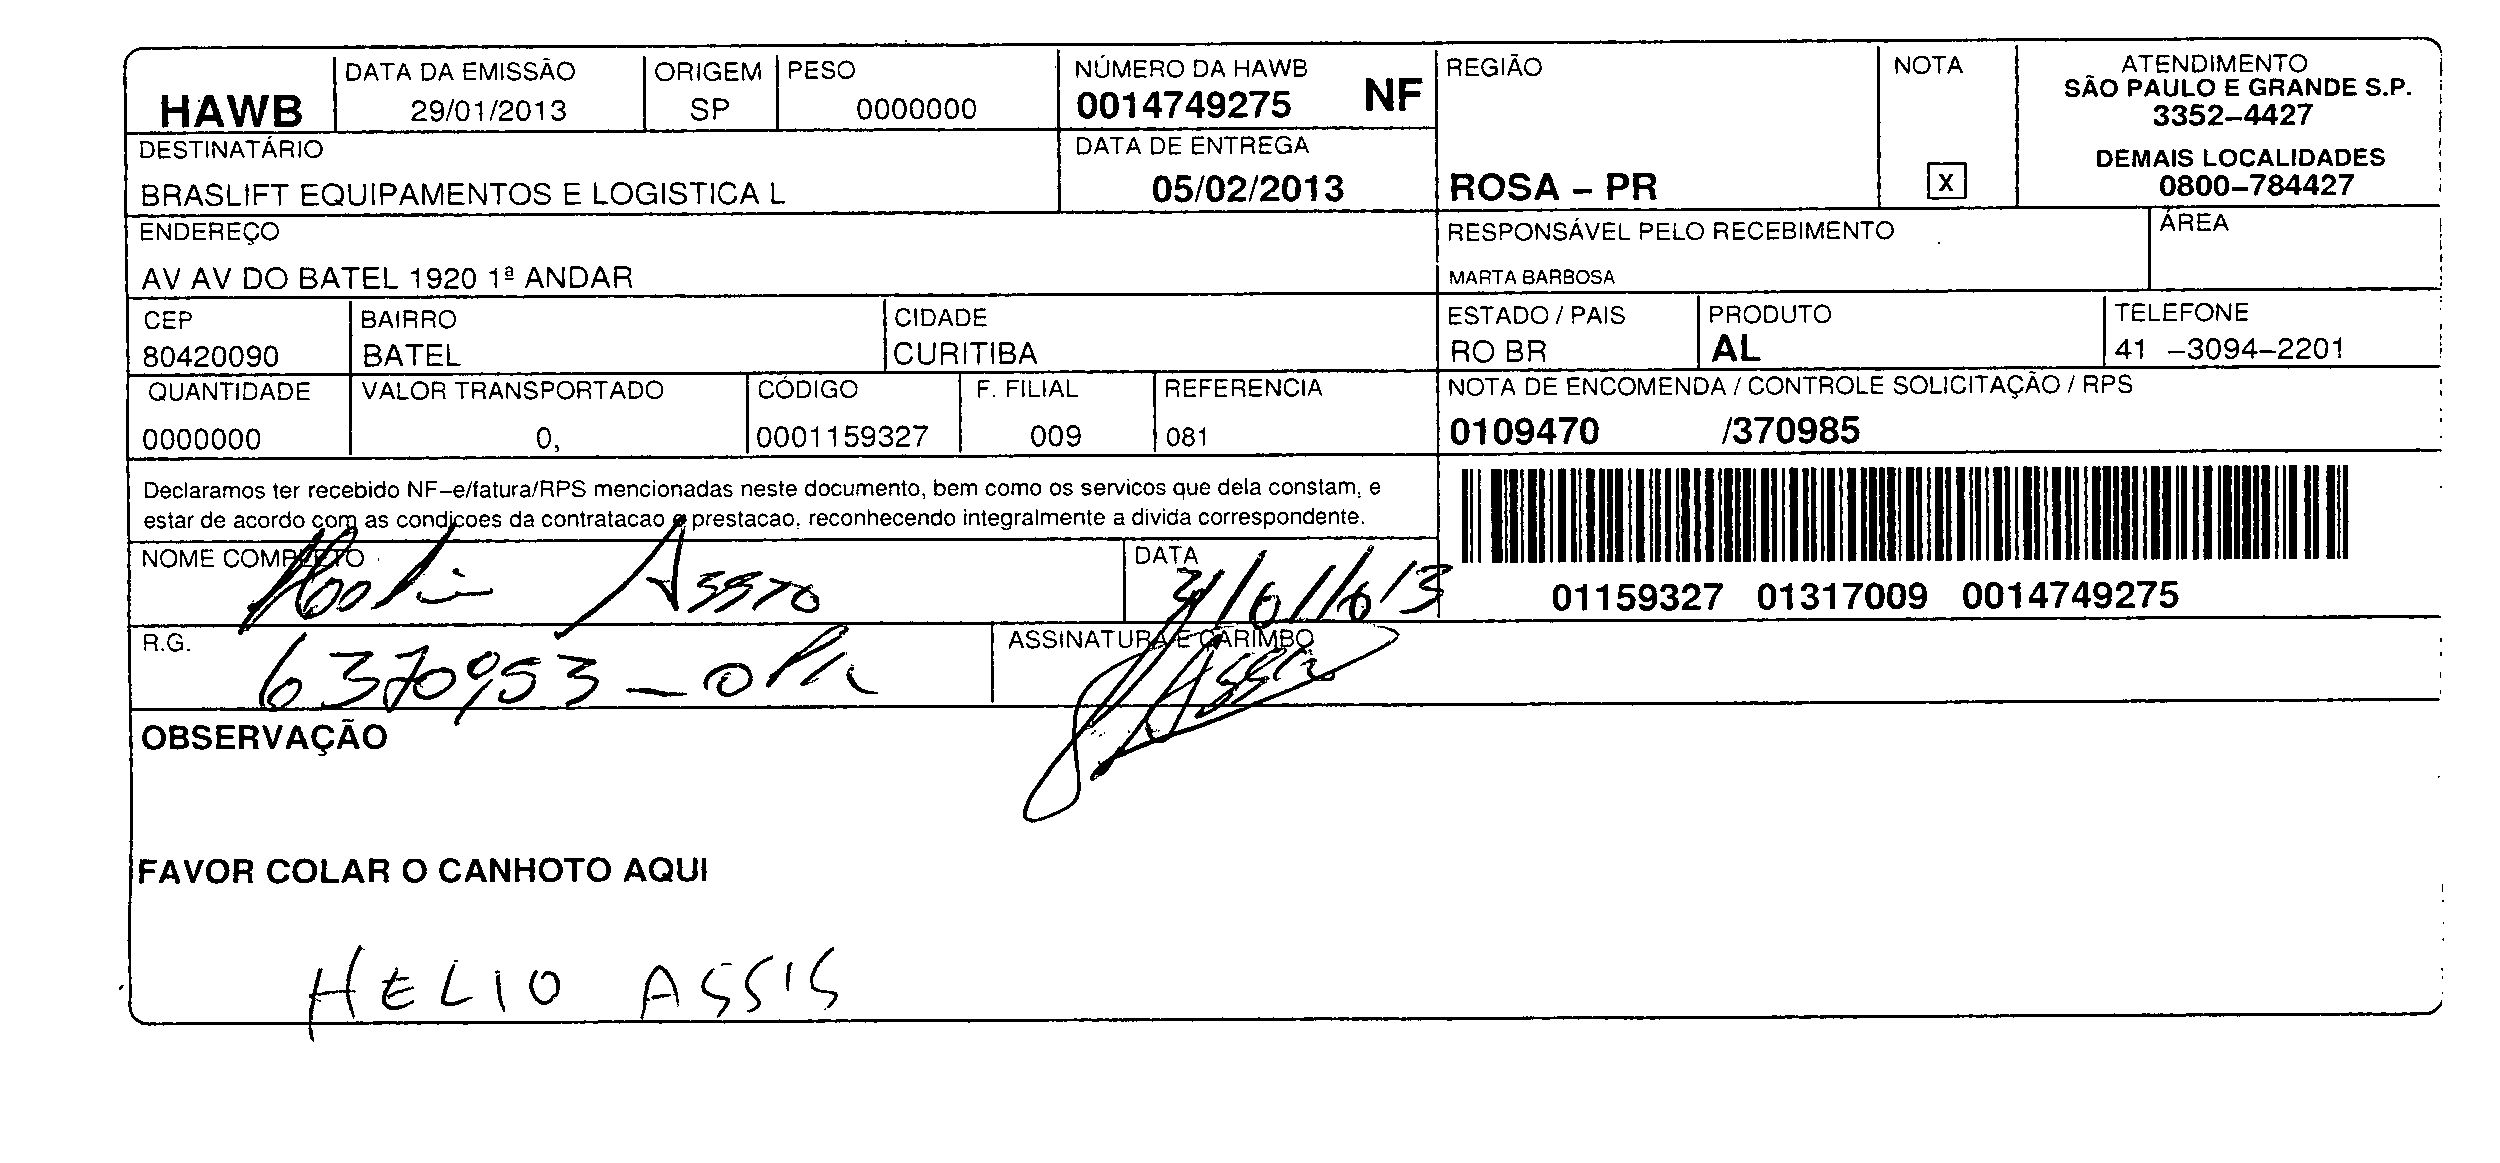 HAWB
DATA DA EMISSÃO
29/01/2013
ORIGEM
SP
PESO
0000000
NÚMERO DA HAWB
0014749275 NF
REGIÃO
ROSA – PR
NOTA
X
ATENDIMENTO
SÃO PAULO E GRANDE S.P.
3352–4427
DEMAIS LOCALIDADES
0800–784427
DESTINATÁRIO
BRASLIFT EQUIPAMENTOS E LOGISTICA L
DATA DE ENTREGA
05/02/2013
ENDEREÇO
AV AV DO BATEL 1920 1ª ANDAR
RESPONSÁVEL PELO RECEBIMENTO
MARTA BARBOSA
ÁREA
CEP
80420090
BAIRRO
BATEL
CIDADE
CURITIBA
ESTADO / PAIS
RO BR
PRODUTO
AL
TELEFONE
41 –3094–2201
QUANTIDADE
0000000
VALOR TRANSPORTADO
0,
CÓDIGO
0001159327
F. FILIAL
009
REFERENCIA
081
NOTA DE ENCOMENDA / CONTROLE SOLICITAÇÃO / RPS
0109470 /370985
Declaramos ter recebido NF–e/fatura/RPS mencionadas neste documento, bem como os servicos que dela constam, e
estar de acordo com as condicoes da contratacao e prestacao, reconhecendo integralmente a divida correspondente.
01159327 01317009 0014749275
NOME COMPLETO
DATA
31/01/013
R.G.
6370953–0 PR
ASSINATURA E CARIMBO
OBSERVAÇÃO
FAVOR COLAR O CANHOTO AQUI
HELIO ASSIS